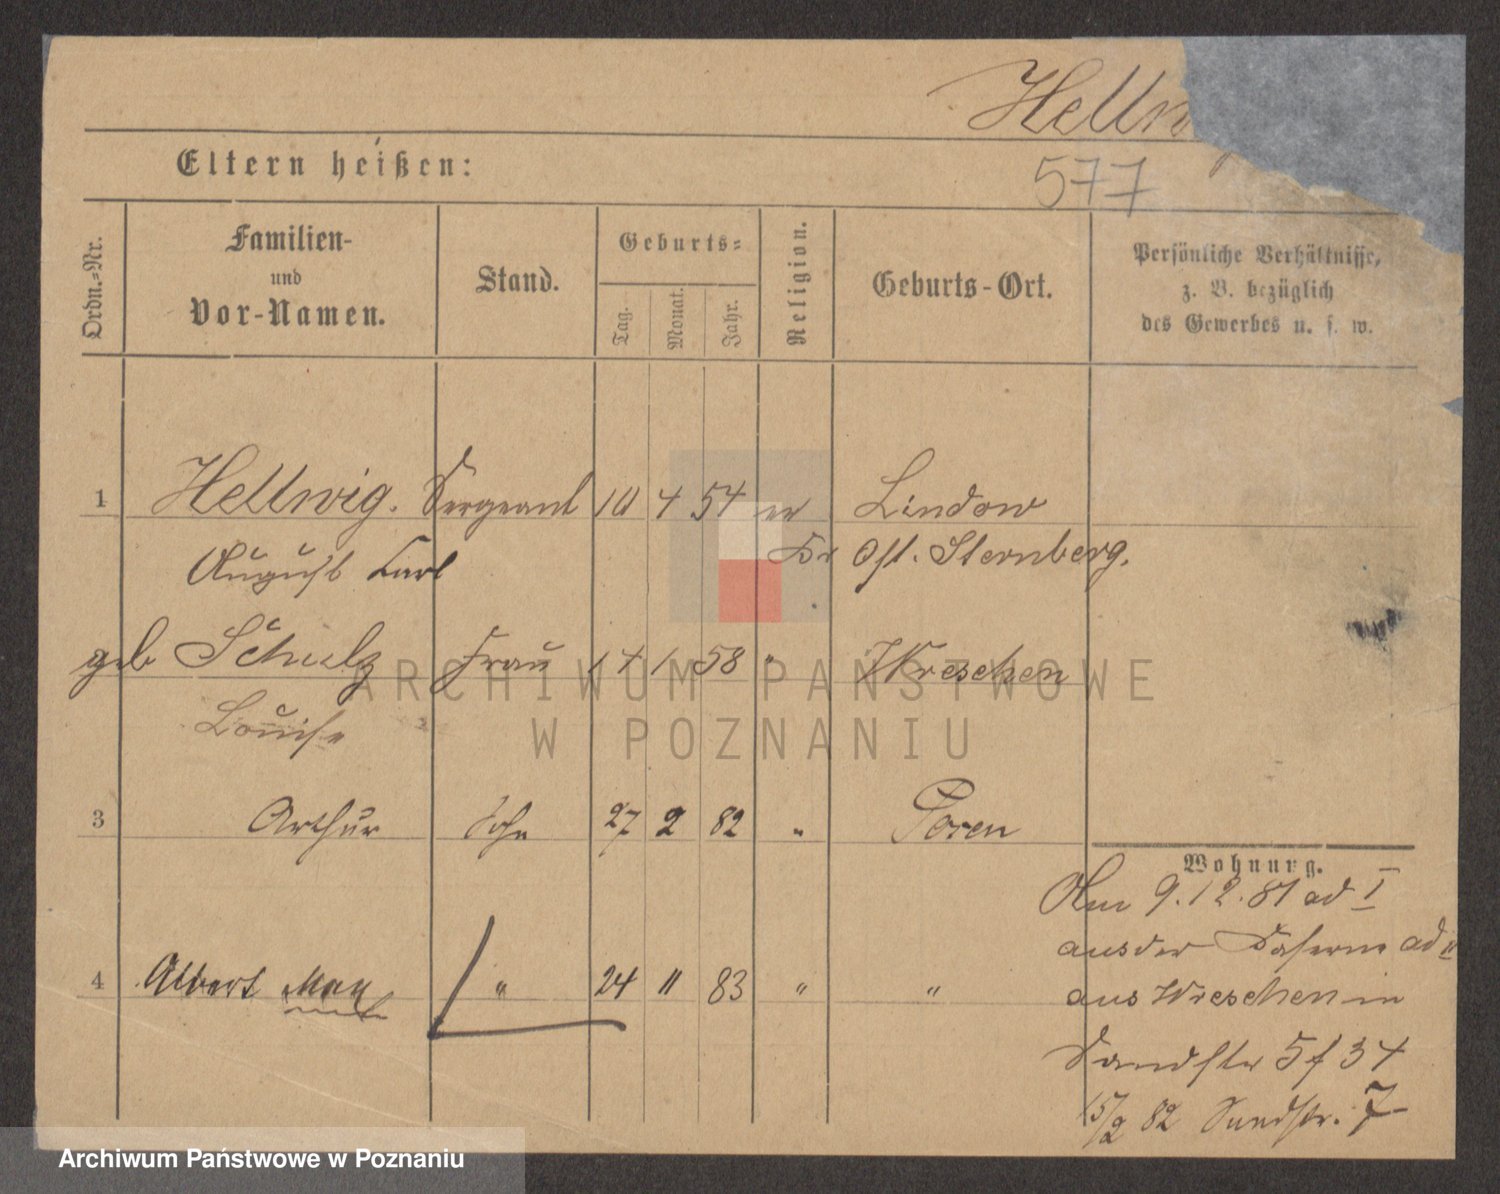 Hellw
Eltern heißen:
577
Ordn.-Nr.
Familien-
und
Vor-Namen.
Stand.
Geburts-
Tag.
Monat.
Jahr.
Religion.
Geburts-Ort.
Persönliche Verhältnisse,
z. B. bezüglich
des Gewerbes u. s. w.
1 Hellwig. Sergeant 10 4 54 ev Lindow
August Karl Kr Ost. Sternberg.
geb Schulz Frau 17 1 58 " Wreschen
Louise
3 Arthur Sohn 27 2 82 " Posen
Wohnung.
9.12.81 ad I
aus der Kaserne ad II
4 Albert Max " 24 11 83 " "
aus Wreschen in
Sandstr 5 f 34
15/2 82 Sandstr. 7
ARCHIWUM PAŃSTWOWE
W POZNANIU
Archiwum Państwowe w Poznaniu